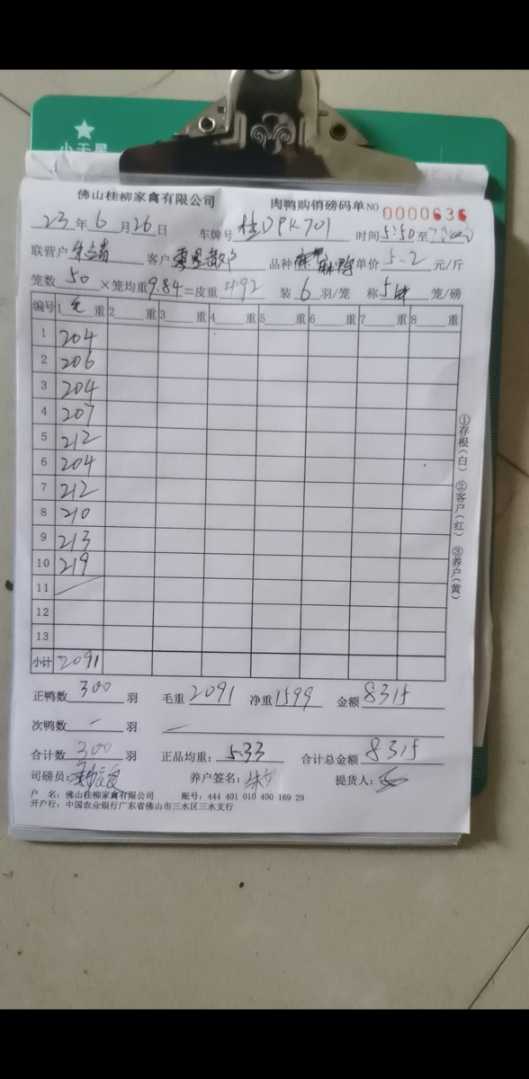 佛山桂柳家禽有限公司 肉鸭购销磅码单 NO 0000636
23年6月26日 车牌号 桂DPK701 时间5:50至
联营户 客户 品种 单价5.2元/斤
笼数50×笼均重9.84=皮重492 装6羽/笼 称5 笼/磅
编号 1 毛 重 2 重 3 重 4 重 5 重 6 重 7 重 8 重
1 204
2 206
3 204
4 207
5 212
6 204
7 212
8 210
9 213
10 219
11
12
13
小计 2091
正鸭数300羽 毛重2091 净重1599 金额8315
次鸭数 羽
合计数300羽 正品均重:5.33 合计总金额8315
司磅员: 养户签名: 提货人:
户 名:佛山桂柳家禽有限公司 账号:444 491 010 400 169 29
开户行:中国农业银行广东省佛山市三水区三水支行
①存根(白) ②客户(红) ③养户(黄)